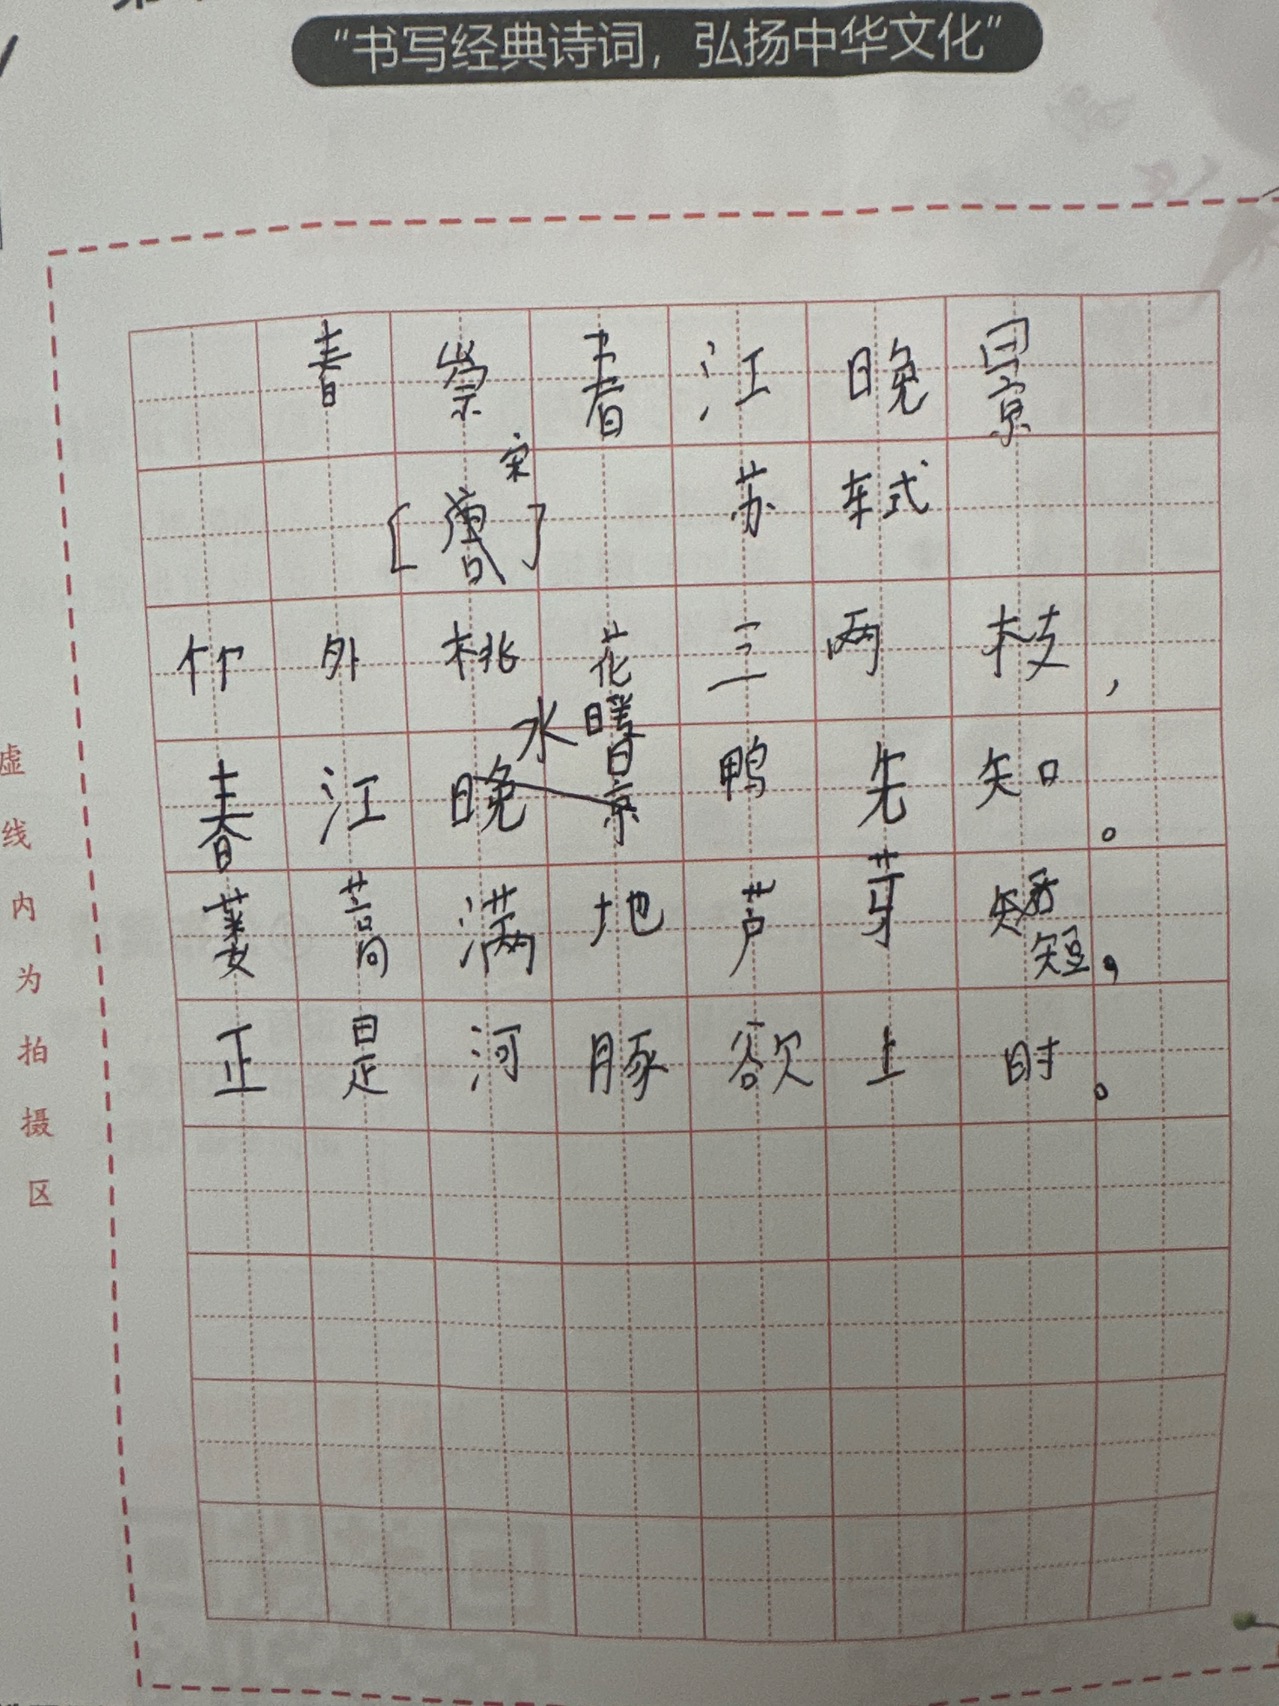 “书写经典诗词，弘扬中华文化”
春崇春江晚景
[宋] 苏轼
竹外桃花三两枝，
春江水暖鸭先知。
蒌蒿满地芦芽短，
正是河豚欲上时。
虚线内为拍摄区